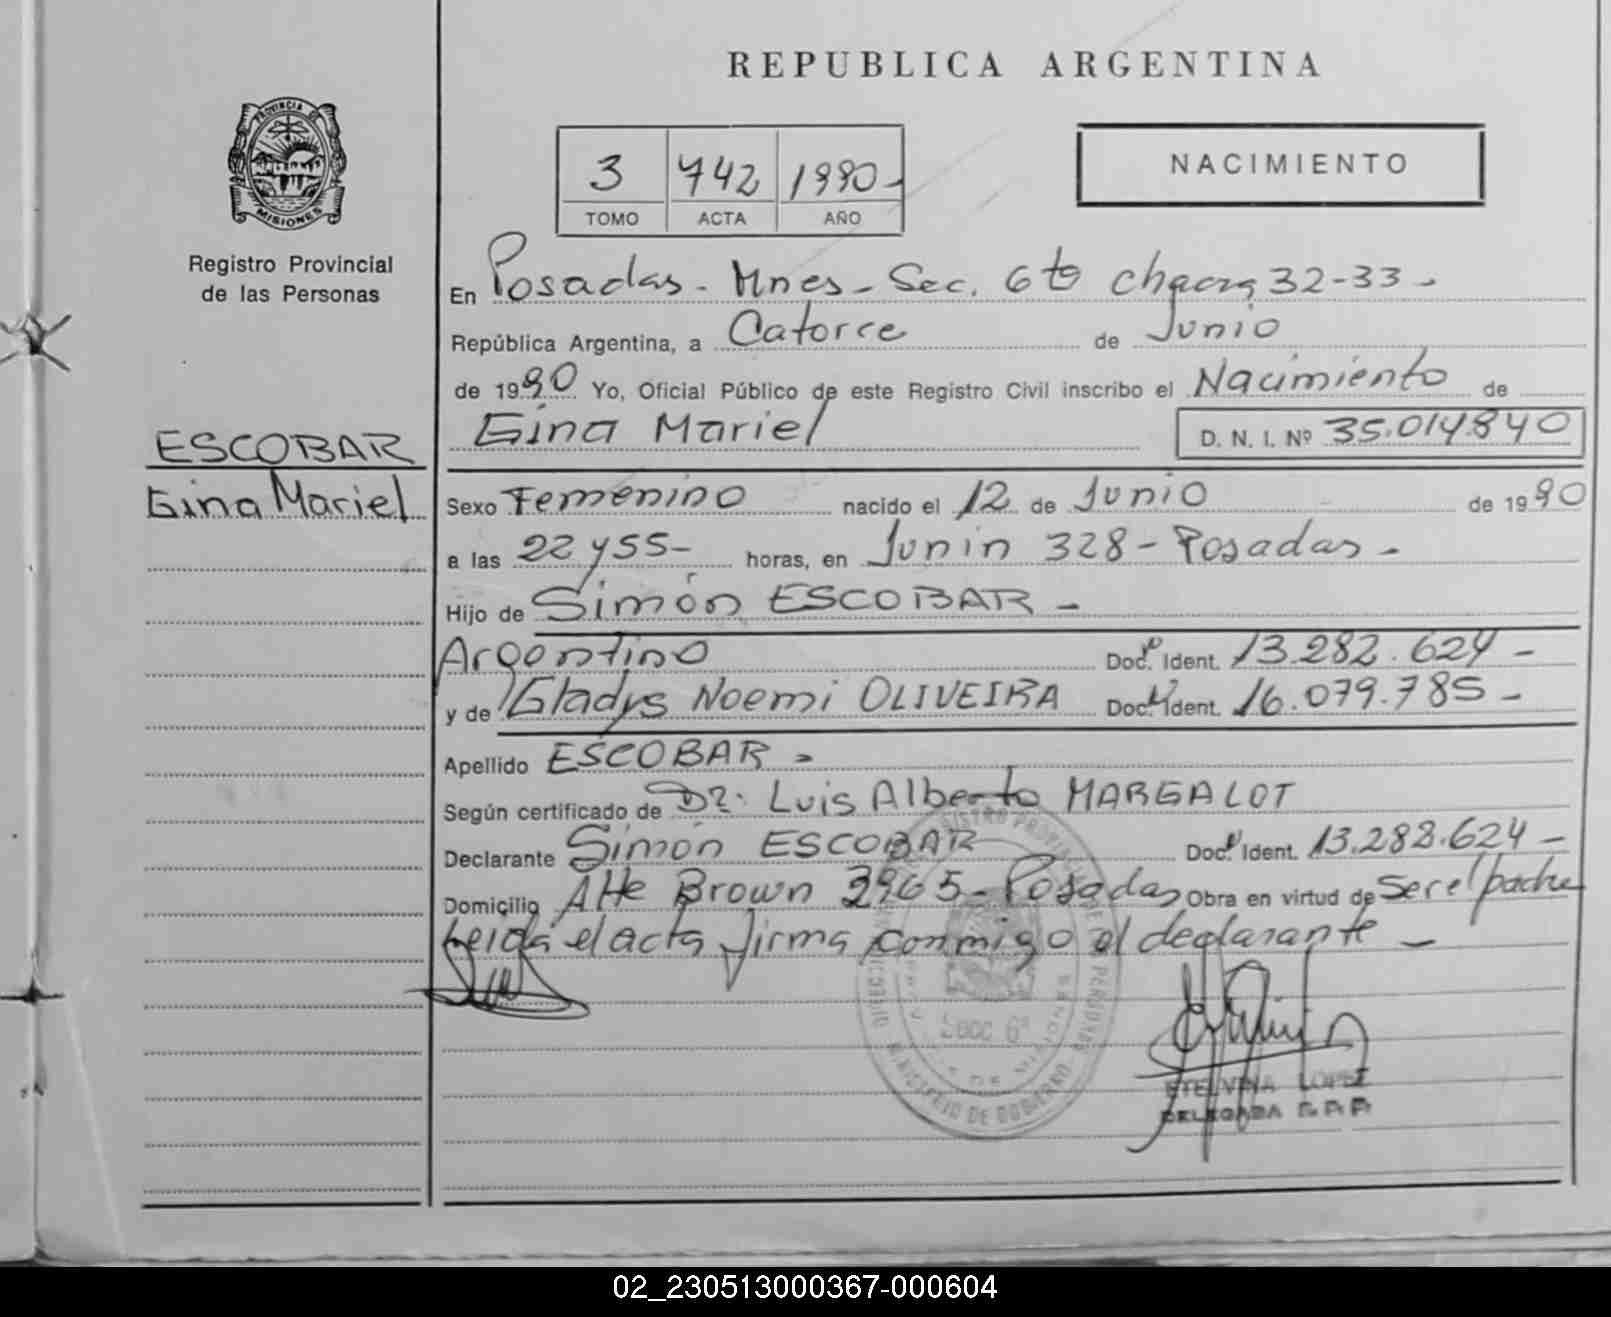 REPUBLICA ARGENTINA
PROVINCIA DE
MISIONES
Registro Provincial
de las Personas
3 742 1990-
TOMO ACTA AÑO
NACIMIENTO
En Posadas - Mnes - Sec. 6ta chacra 32-33 -
República Argentina, a Catorce de Junio
de 1990 Yo, Oficial Público de este Registro Civil inscribo el Nacimiento de
Gina Mariel D. N. I. Nº 35.014.840
ESCOBAR
Gina Mariel
Sexo Femenino nacido el 12 de Junio de 1990
a las 22 y 55 - horas, en Junin 328 - Posadas -
Hijo de Simón ESCOBAR -
Argentino Doc. Ident. 13.282.624 -
y de Gladys Noemi OLIVEIRA Doc. Ident. 16.079.785 -
Apellido ESCOBAR -
Según certificado de Dr. Luis Alberto MARGALOT
Declarante Simón ESCOBAR Doc. Ident. 13.282.624 -
Domicilio Alte Brown 2965 - Posadas Obra en virtud de ser el padre
Leida el acta firma conmigo el declarante -
SECC 6ª
MINISTERIO DE GOBIERNO
ETELVINA LOPEZ
DELEGADA R.P.P.
02_230513000367-000604